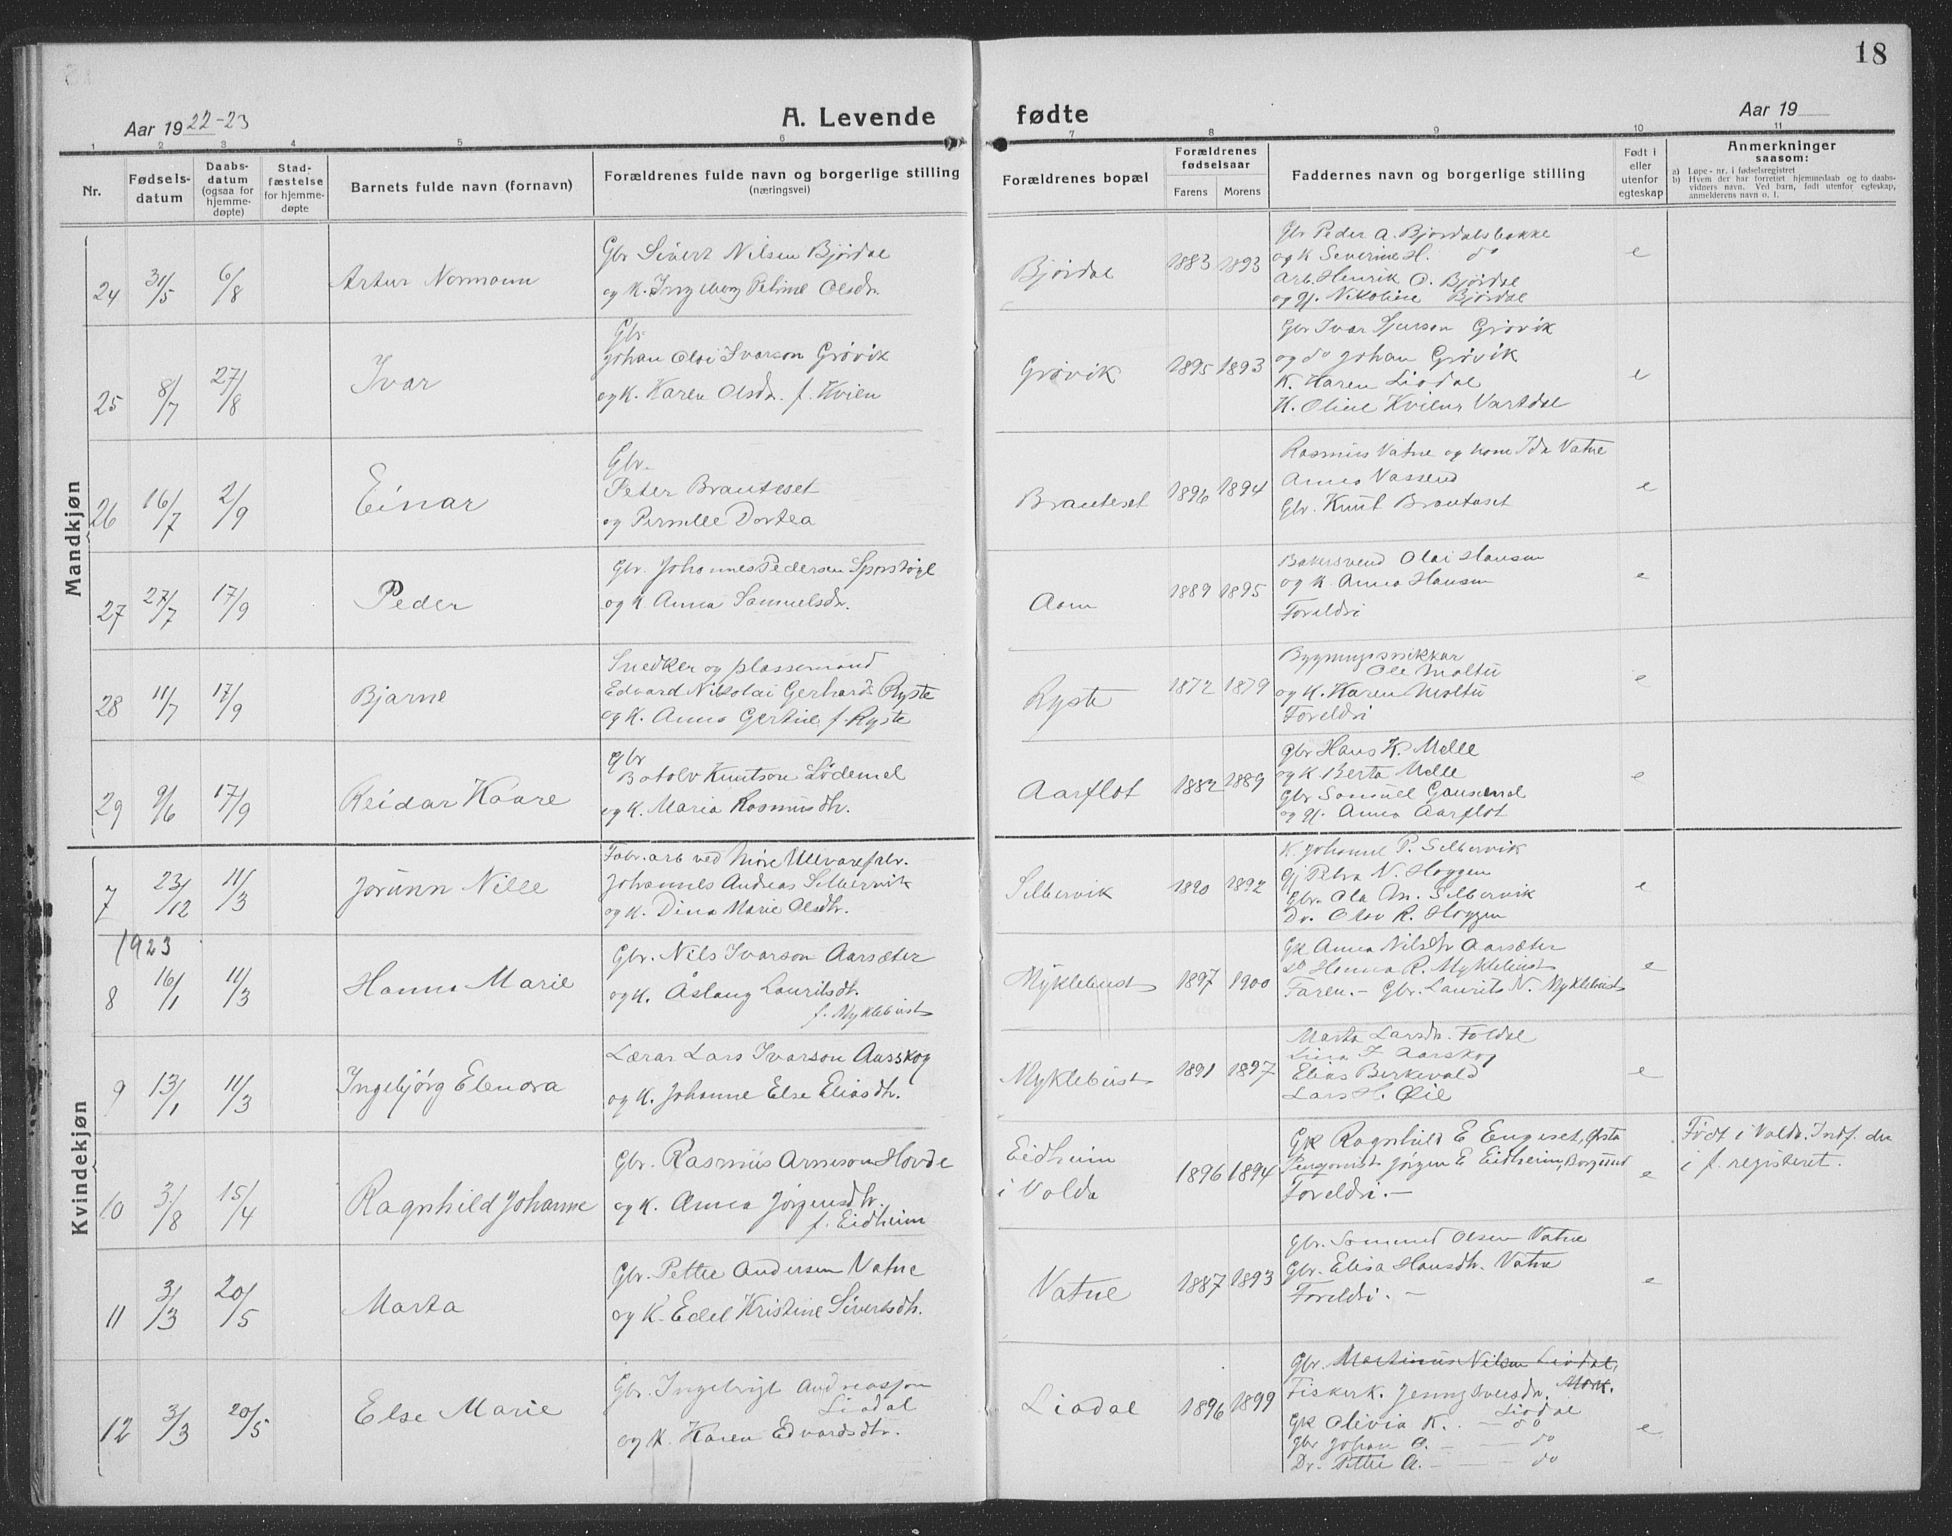 18
Aar 1922-23
A. Levende fødte
Aar 19
1 2 3 4 5 6 7 8 9 10 11
Nr.
Fødsels-
datum
Daabs-
datum
(ogsaa for
hjemme-
døpte)
Stad-
fæstelse
for hjemme-
døpte
Barnets fulde navn (fornavn)
Forældrenes fulde navn og borgerlige stilling
(næringsvei)
Forældrenes bopæl
Forældrenes
fødselsaar
Farens Morens
Faddernes navn og borgerlige stilling
Født i
eller
utenfor
egteskap
Anmerkninger
saasom:
a) Løpe-nr. i fødselsregistret
b) Hvem der har forrettet hjemmedaab og to daabs-
vidners navn. Ved barn, født utenfor egteskap,
anmelderens navn o. l.
Mandkjøn
24 31/5 6/8 Artur Normann
Gbr Sivert Nilsen Bjørdal
og K. Ingeborg Peline Olsdr.
Bjørdal 1883 1893
Gbr Peder A. Bjørdalsbakke
og K Severine H. do
Arb. Henrik O. Bjørdal
og gj. Nikoline Bjørdal
e
25 8/7 27/8 Ivar
Gbr
Johan Olai Ivarson Grøvik
og K. Karen Olsdr. f. Kvien
Grøvik 1895 1893
Gbr Ivar Sjurson Grøvik
og do Johan Grøvik
K. Karen Liadal
K. Oline Kvien Vartdal
e
26 16/7 2/9 Einar
Gbr.
Peter Brauteset
og Pernelle Dortea
Brauteset 1896 1894
Rasmus Vatne og kone Ida Vatne
Anna Vassend
Gbr. Knut Brauteset
e
27 27/7 17/9 Peder
Gbr. Johannes Pedersen Sporstøyl
og K Anna Samuelsdr.
Aam 1889 1895
Bakersvend Olai Hansen
og K. Anna Hansen
Foreldri
e
28 11/7 17/9 Bjarne
Snedker og plassemand
Edvard Nikolai Gerhards Ryste
og K. Anna Gertine f. Ryste
Ryste 1872 1879
Bygningssnikkar
Ole Moltu
og K. Karen Moltu
Foreldri
e
29 9/6 17/9 Reidar Kaare
Gbr
Botolv Knutson Lødemel
og K. Maria Rasmusdtr.
Aarflot 1882 1889
Gbr Hans K. Melle
og K. Berta Melle
Gbr Samuel
og gj. Anna Aarflot
e
Kvindekjøn
7 23/12 11/3 Jorunn Nille
Fabr. arb ved Møre Ullvarefabr.
Johannes Andreas Selbervik
og K. Dina Marie Olsdtr.
Selbervik 1890 1892
K. Johanne P. Selbervik
Gj Petra N. Høggen
Gbr. Ola M. Selbervik
Dr. Olav R. Høggen
e
1923
8 16/1 11/3 Hanna Marie
Gbr. Nils Ivarson Aarsæter
og K. Åslaug Lauritsdtr.
f. Myklebust
Myklebust 1897 1900
Gk Anna Nilsdtr Aarsæter
do Hanna R. Myklebust
Faren. - Gbr. Laurits N. Myklebust
e
9 13/1 11/3 Ingebjørg Elenora
Lærar Lars Ivarson Aarskog
og K. Johanne Else Eliasdtr.
Myklebust 1891 1897
Marta Larsdr. Foldal
Lina I Aarskog
Elias Berkevold
Lars H. Øie
e
10 3/8 15/4 Ragnhild Johanne
Gbr. Rasmus Arneson Hovde
og K. Anna Jørgensdtr.
f. Eidheim
Eidheim
i Volda
1896 1894
Gk Ragnhild E Engeset, Ørsta
Pensjonist Jørgen E Eidheim, Borgund
Foreldri. -
e
Født i Volda. Indf. der
i f. registeret.
11 3/3 20/5 Marta
Gbr. Petter Andersen Vatne
og K. Edel Kristine Sivertsdtr.
Vatne 1887 1893
Gbr. Sommund Olsen Vatne
Gbr. Elisa Hansdtr. Vatne
Foreldri. -
e
12 3/3 20/5 Else Marie
Gbr. Ingebrigt Andreasson
Liadal
og K. Karen Edvardsdtr.
Liadal 1896 1899
Gbr. Martinus Nilsen Liadal,
Fiskerk. Jenny Iversdr. Mork.
Liadal
Gk Olivia K. - do
Gbr Johan A. - - do
Dr. Petter A. - - - do
e